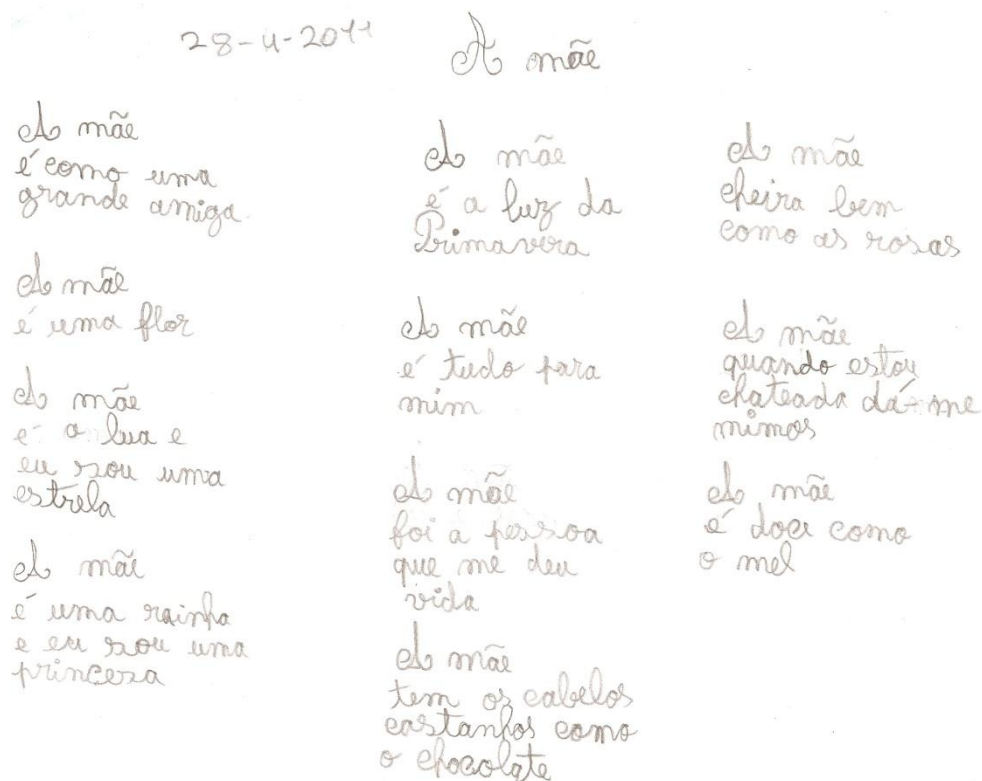 28-4-2011
A mãe
A mãe
é como uma
grande amiga.
A mãe
é uma flor
A mãe
é a lua e
eu sou uma
estrela
A mãe
é uma rainha
e eu sou uma
princesa
A mãe
é a luz da
Primavera
A mãe
é tudo para
mim
A mãe
foi a pessoa
que me deu
vida
A mãe
tem os cabelos
castanhos como
o chocolate
A mãe
cheira bem
como as rosas
A mãe
quando estou
chateada dá-me
mimos
A mãe
é doce como
o mel